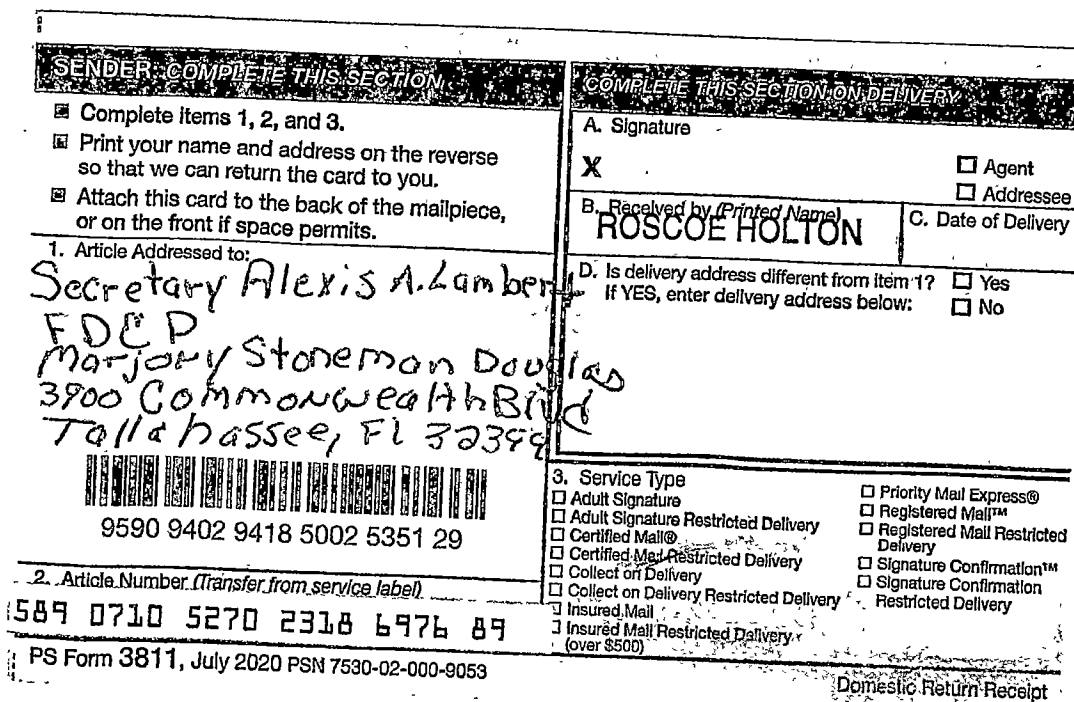 SENDER: COMPLETE THIS SECTION
Complete items 1, 2, and 3.
Print your name and address on the reverse
so that we can return the card to you.
Attach this card to the back of the mailpiece,
or on the front if space permits.
1. Article Addressed to:
Secretary Alexis A. Lambert
FDEP
Marjory Stoneman Douglas
3900 Commonwealth Blvd
Tallahassee, Fl 32399
9590 9402 9418 5002 5351 29
2. Article Number (Transfer from service label)
589 0710 5270 2318 6976 89
PS Form 3811, July 2020 PSN 7530-02-000-9053
COMPLETE THIS SECTION ON DELIVERY
A. Signature
X
Agent
Addressee
B. Received by (Printed Name)
ROSCOE HOLTON
C. Date of Delivery
D. Is delivery address different from item 1? Yes
If YES, enter delivery address below: No
3. Service Type
Adult Signature
Adult Signature Restricted Delivery
Certified Mail®
Certified Mail Restricted Delivery
Collect on Delivery
Collect on Delivery Restricted Delivery
Insured Mail
Insured Mail Restricted Delivery
(over $500)
Priority Mail Express®
Registered Mail™
Registered Mail Restricted
Delivery
Signature Confirmation™
Signature Confirmation
Restricted Delivery
Domestic Return Receipt